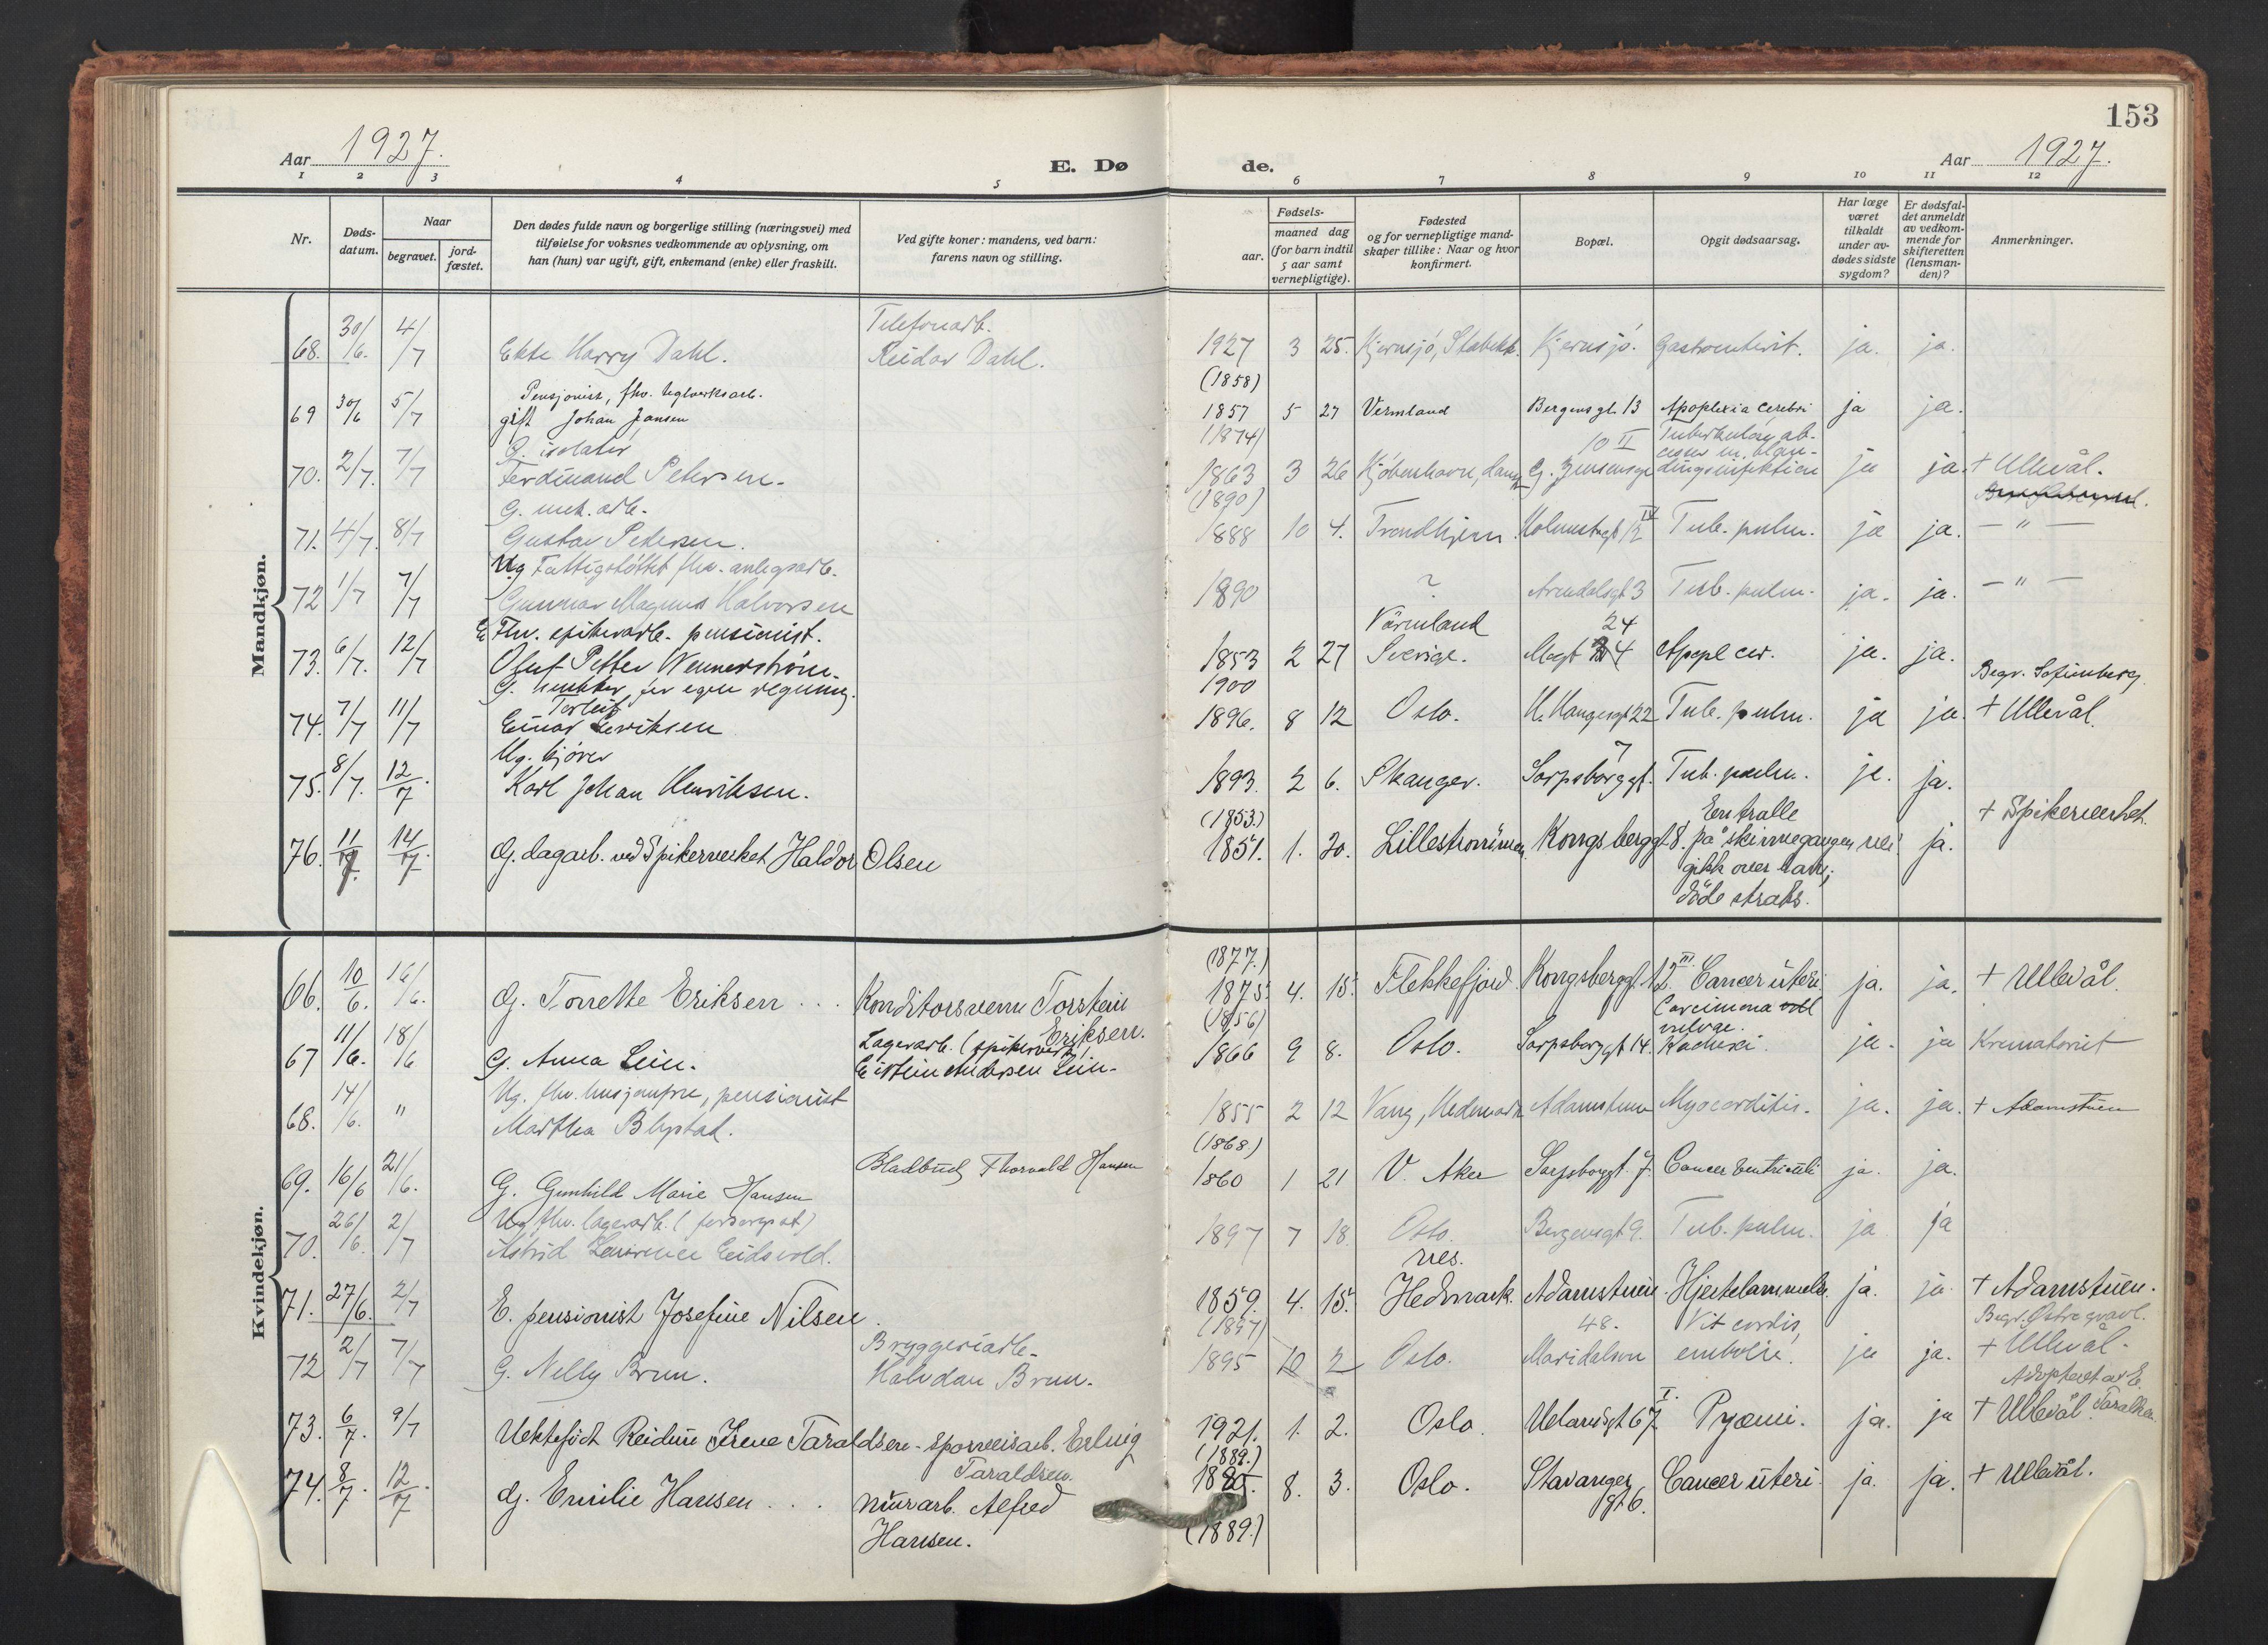 153
Aar 1927.
E. Dø
de.
Aar 1927.
1 2 3 4 5 6 7 8 9 10 11 12
Nr.
Døds-
datum.
Naar
begravet.
jord-
fæstet.
Den dødes fulde navn og borgerlige stilling (næringsvei) med
tilføielse for voksnes vedkommende av oplysning, om
han (hun) var ugift, gift, enkemand (enke) eller fraskilt.
Ved gifte koner: mandens, ved barn:
farens navn og stilling.
Fødsels-
aar.
maaned dag
(for barn indtil
5 aar samt
vernepligtige).
Fødested
og for vernepligtige mand-
skaper tillike: Naar og hvor
konfirmert.
Bopæl.
Opgit dødsaarsag.
Har læge
været
tilkaldt
under av-
dødes sidste
sygdom?
Er dødsfal-
det anmeldt
av vedkom-
mende for
skifteretten
(lensman-
den)?
Anmerkninger.
Mandkjøn.
Telefonarb.
68. 30/6. 4/7 Ekte Harry Dahl. Reidar Dahl. 1927 3 25. Kjernsjö, Stabekk. Kjernsjö. Gastroenterit. ja. ja.
Pensjonist, fhv. teglverksarb. (1858)
69 30/6 5/7 gift Johan Jansen 1857 5 27 Vermland Bergensgt. 13 Apoplexia cerebri ja ja.
G. isolatör (1874) 10 II Tuberkuløs ab-
70. 2/7. 7/7 Ferdinand Petersen. 1863 3 26 Kjöbenhavn, G. Jensensgt cesser m. blan-
dingsinfektion ja ja. + Ullevål.
G. mek. arb. (1890)
71. 4/7. 8/7 Gustav Pedersen. 1888 10 4. Trondhjem. Holmstrgt 12 IV Tub. pulm. ja ja. — " —
Ug Fattigstöttet fhv. anlegsarb.
72 1/7 7/7 Gunnar Magnus Halvorsen 1890 ? Arendalsgt 3 Tub. pulm. ja. ja. — " —
E Fhv. spikerarb. pensionist. Värmland 24
73. 6/7. 12/7 Oluf Petter Wennerström. 1853 2 27 Sverige. Apopl cer. ja. ja.
G. snekker, for egen regning. 1900 Begr. Sofienberg
Torleif
74. 7/7 11/7 Einar Henriksen 1896. 8 12 Oslo. H. Haugesgt 22 Tub. pulm. ja ja. + Ullevål.
Ug. kjörer 7
75. 8/7. 12/7. Karl Johan Henriksen. 1893. 2 6. Skanger. Sarpsborggt. Tub. pulm. ja. ja.
(1853.) En tralle + Spikerverket.
76. 11/7 14/7. G. dagarb. ved Spikerverket Haldor Olsen 1851. 1. 20. Lillestrømmen Kongsberggt 8. på skinnegangen nei. ja.
gikk over ham;
döde straks.
Kvindekjøn.
(1877.)
66. 10/6. 16/6. G. Tonette Eriksen ... Konditorsvenn Torstein
Eriksen. 1875. 4. 15. Flekkefjord. Kongsberggt. 12 III. Cancer uteri. ja. ja. + Ullevål.
(1856) Carcinoma
vulvae.
67 11/6. 18/6 G. Anna Lein. Lagerarb. (spikerverk)
Eistein Andersen Lein. 1866 9 8. Oslo. Sarpsborggt 14. Kachexi. ja. ja Krematoriet
Ug. fhv. husjomfru, pensionist
68. 14/6. " Martha Blystad. 1855 2 12 Vang, Hedmark Adamstuen Myocarditis. ja. ja. + Adamstuen
(1868.)
69. 16/6 21/6. G. Gunhild Marie Hansen Bladbud Thorvald Hansen 1860 1 21 V. Aker Sarpsborggt. 7. Cancer Ventriculi ja. ja.
Ug. fhv. lagerarb. (forsorgsat)
70. 26/6. 2/7 Astrid Laurence Eidsvold. 1897 7 18. Oslo. Bergensgt 9. Tub. pulm. ja ja
nes.
71. 27/6. 2/7 E. pensionist Josefine Nilsen. 1859. 4. 15. Hedmark. Adamstuen Hjertelammelse. ja. ja. + Adamstuen.
Bryggeriarb. (1897) 48. Vit cordis, Begr. Østre gravl.
72 2/7 7/7 G. Nelly Brun. Halvdan Brun. 1895 10 2 Oslo. Maridalsvn emboli. ja ja. + Ullevål.
Adoptert av E.
Taraldsen
73. 6/7. 9/7 Uektefödt Reidun Irene Taraldsen - sporveisarb. Erling
Taraldsen. 1921. 1. 2. Oslo. Uelandsgt 67 I. Pyæmi. ja. ja + Ullevål.
(1889.)
74. 8/7. 12/7. G. Emilie Hansen ... murarb. Alfred
Hansen. 1885. 8. 3. Oslo. Stavanger
gt 6. Cancer uteri. ja. ja. + Ullevål.
(1889.)